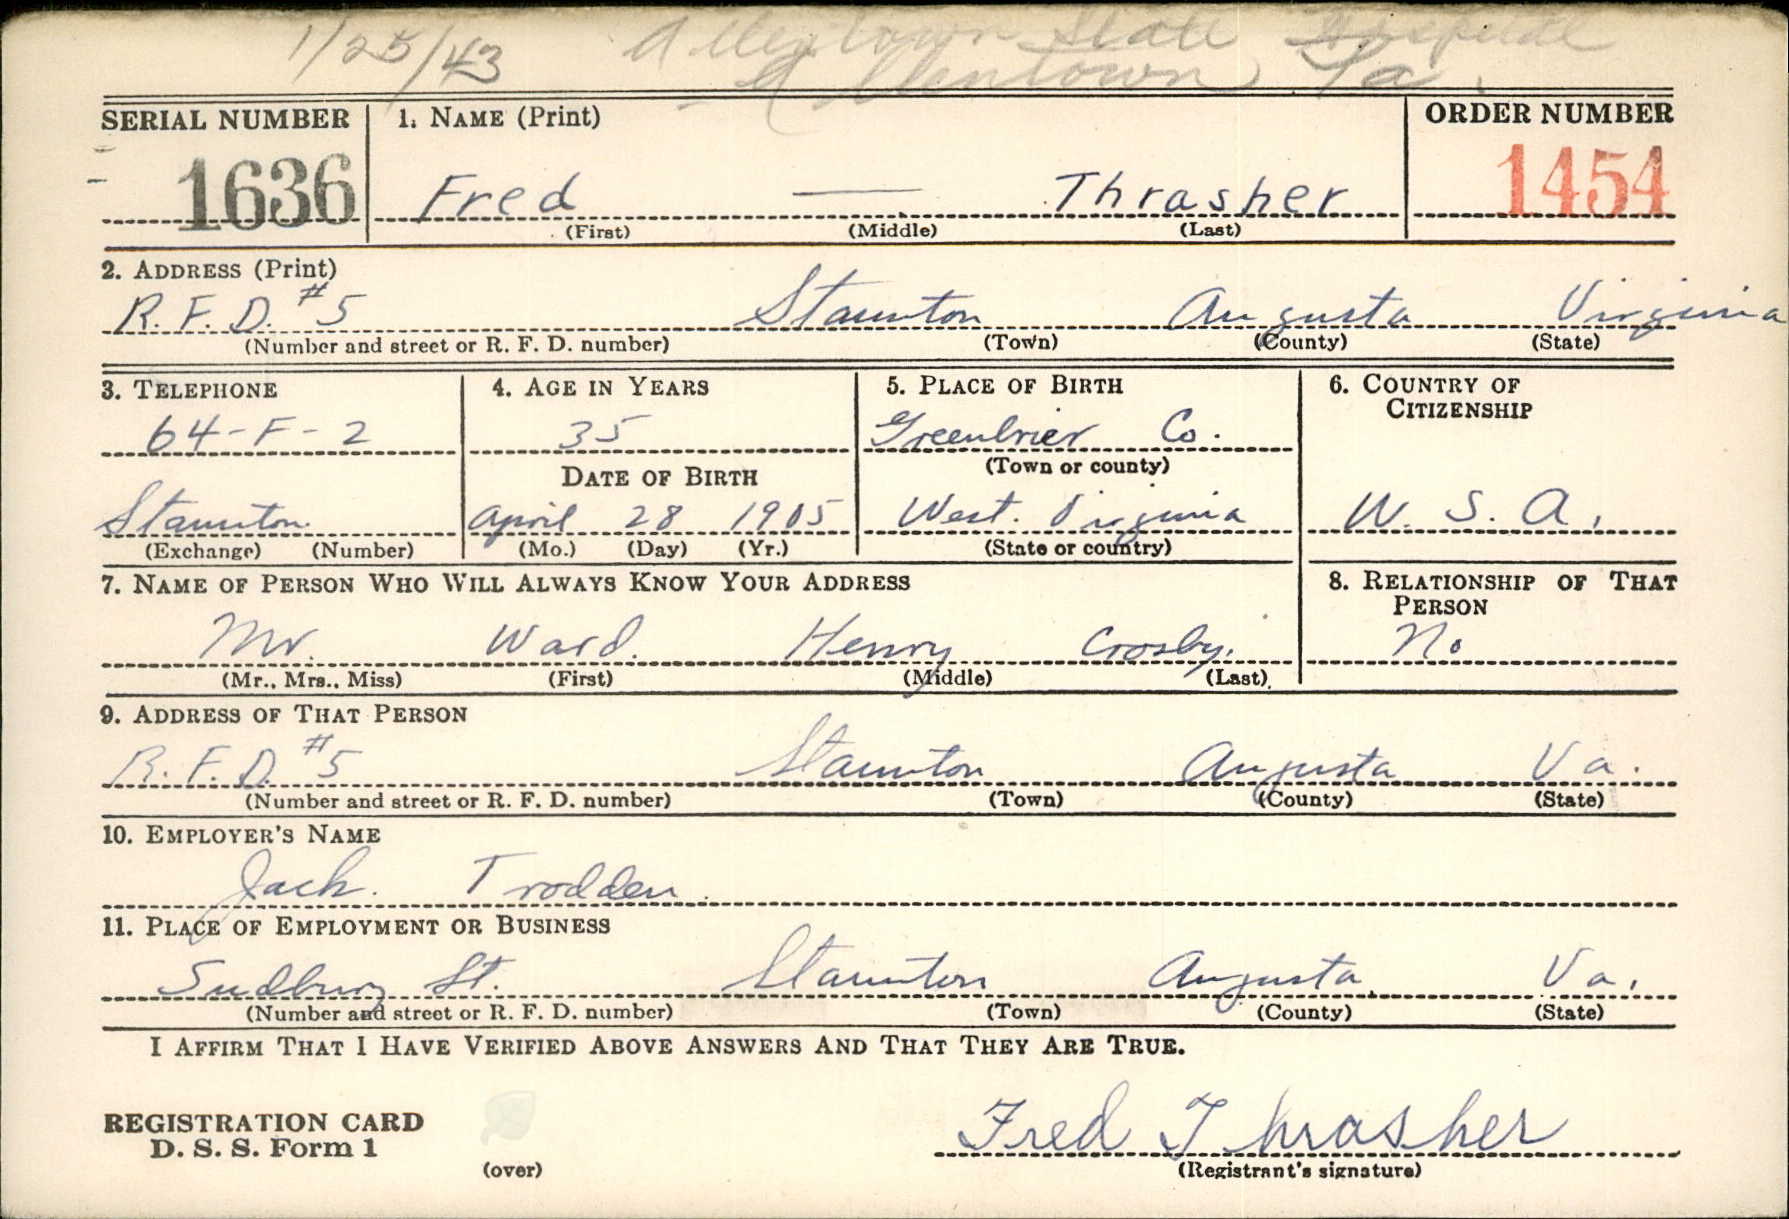 1/25/43 Allentown State Hospital
Allentown Pa.
SERIAL NUMBER 1. NAME (Print) ORDER NUMBER
1636 Fred — Thrasher 1454
(First) (Middle) (Last)
2. ADDRESS (Print)
R. F. D. #5 Staunton Augusta Virginia
(Number and street or R. F. D. number) (Town) (County) (State)
3. TELEPHONE 4. AGE IN YEARS 5. PLACE OF BIRTH 6. COUNTRY OF
CITIZENSHIP
64-F-2 35 Greenbrier Co.
(Town or county)
DATE OF BIRTH
Staunton April 28 1905 West. Virginia U. S. A.
(Exchange) (Number) (Mo.) (Day) (Yr.) (State or country)
7. NAME OF PERSON WHO WILL ALWAYS KNOW YOUR ADDRESS 8. RELATIONSHIP OF THAT
PERSON
Mr. Ward. Henry Crosby. No
(Mr., Mrs., Miss) (First) (Middle) (Last)
9. ADDRESS OF THAT PERSON
R. F. D. #5 Staunton Augusta Va.
(Number and street or R. F. D. number) (Town) (County) (State)
10. EMPLOYER'S NAME
Jack. Trodden.
11. PLACE OF EMPLOYMENT OR BUSINESS
Sudbury St. Staunton Augusta Va.
(Number and street or R. F. D. number) (Town) (County) (State)
I AFFIRM THAT I HAVE VERIFIED ABOVE ANSWERS AND THAT THEY ARE TRUE.
REGISTRATION CARD
D. S. S. Form 1
Fred Thrasher
(over) (Registrant's signature)